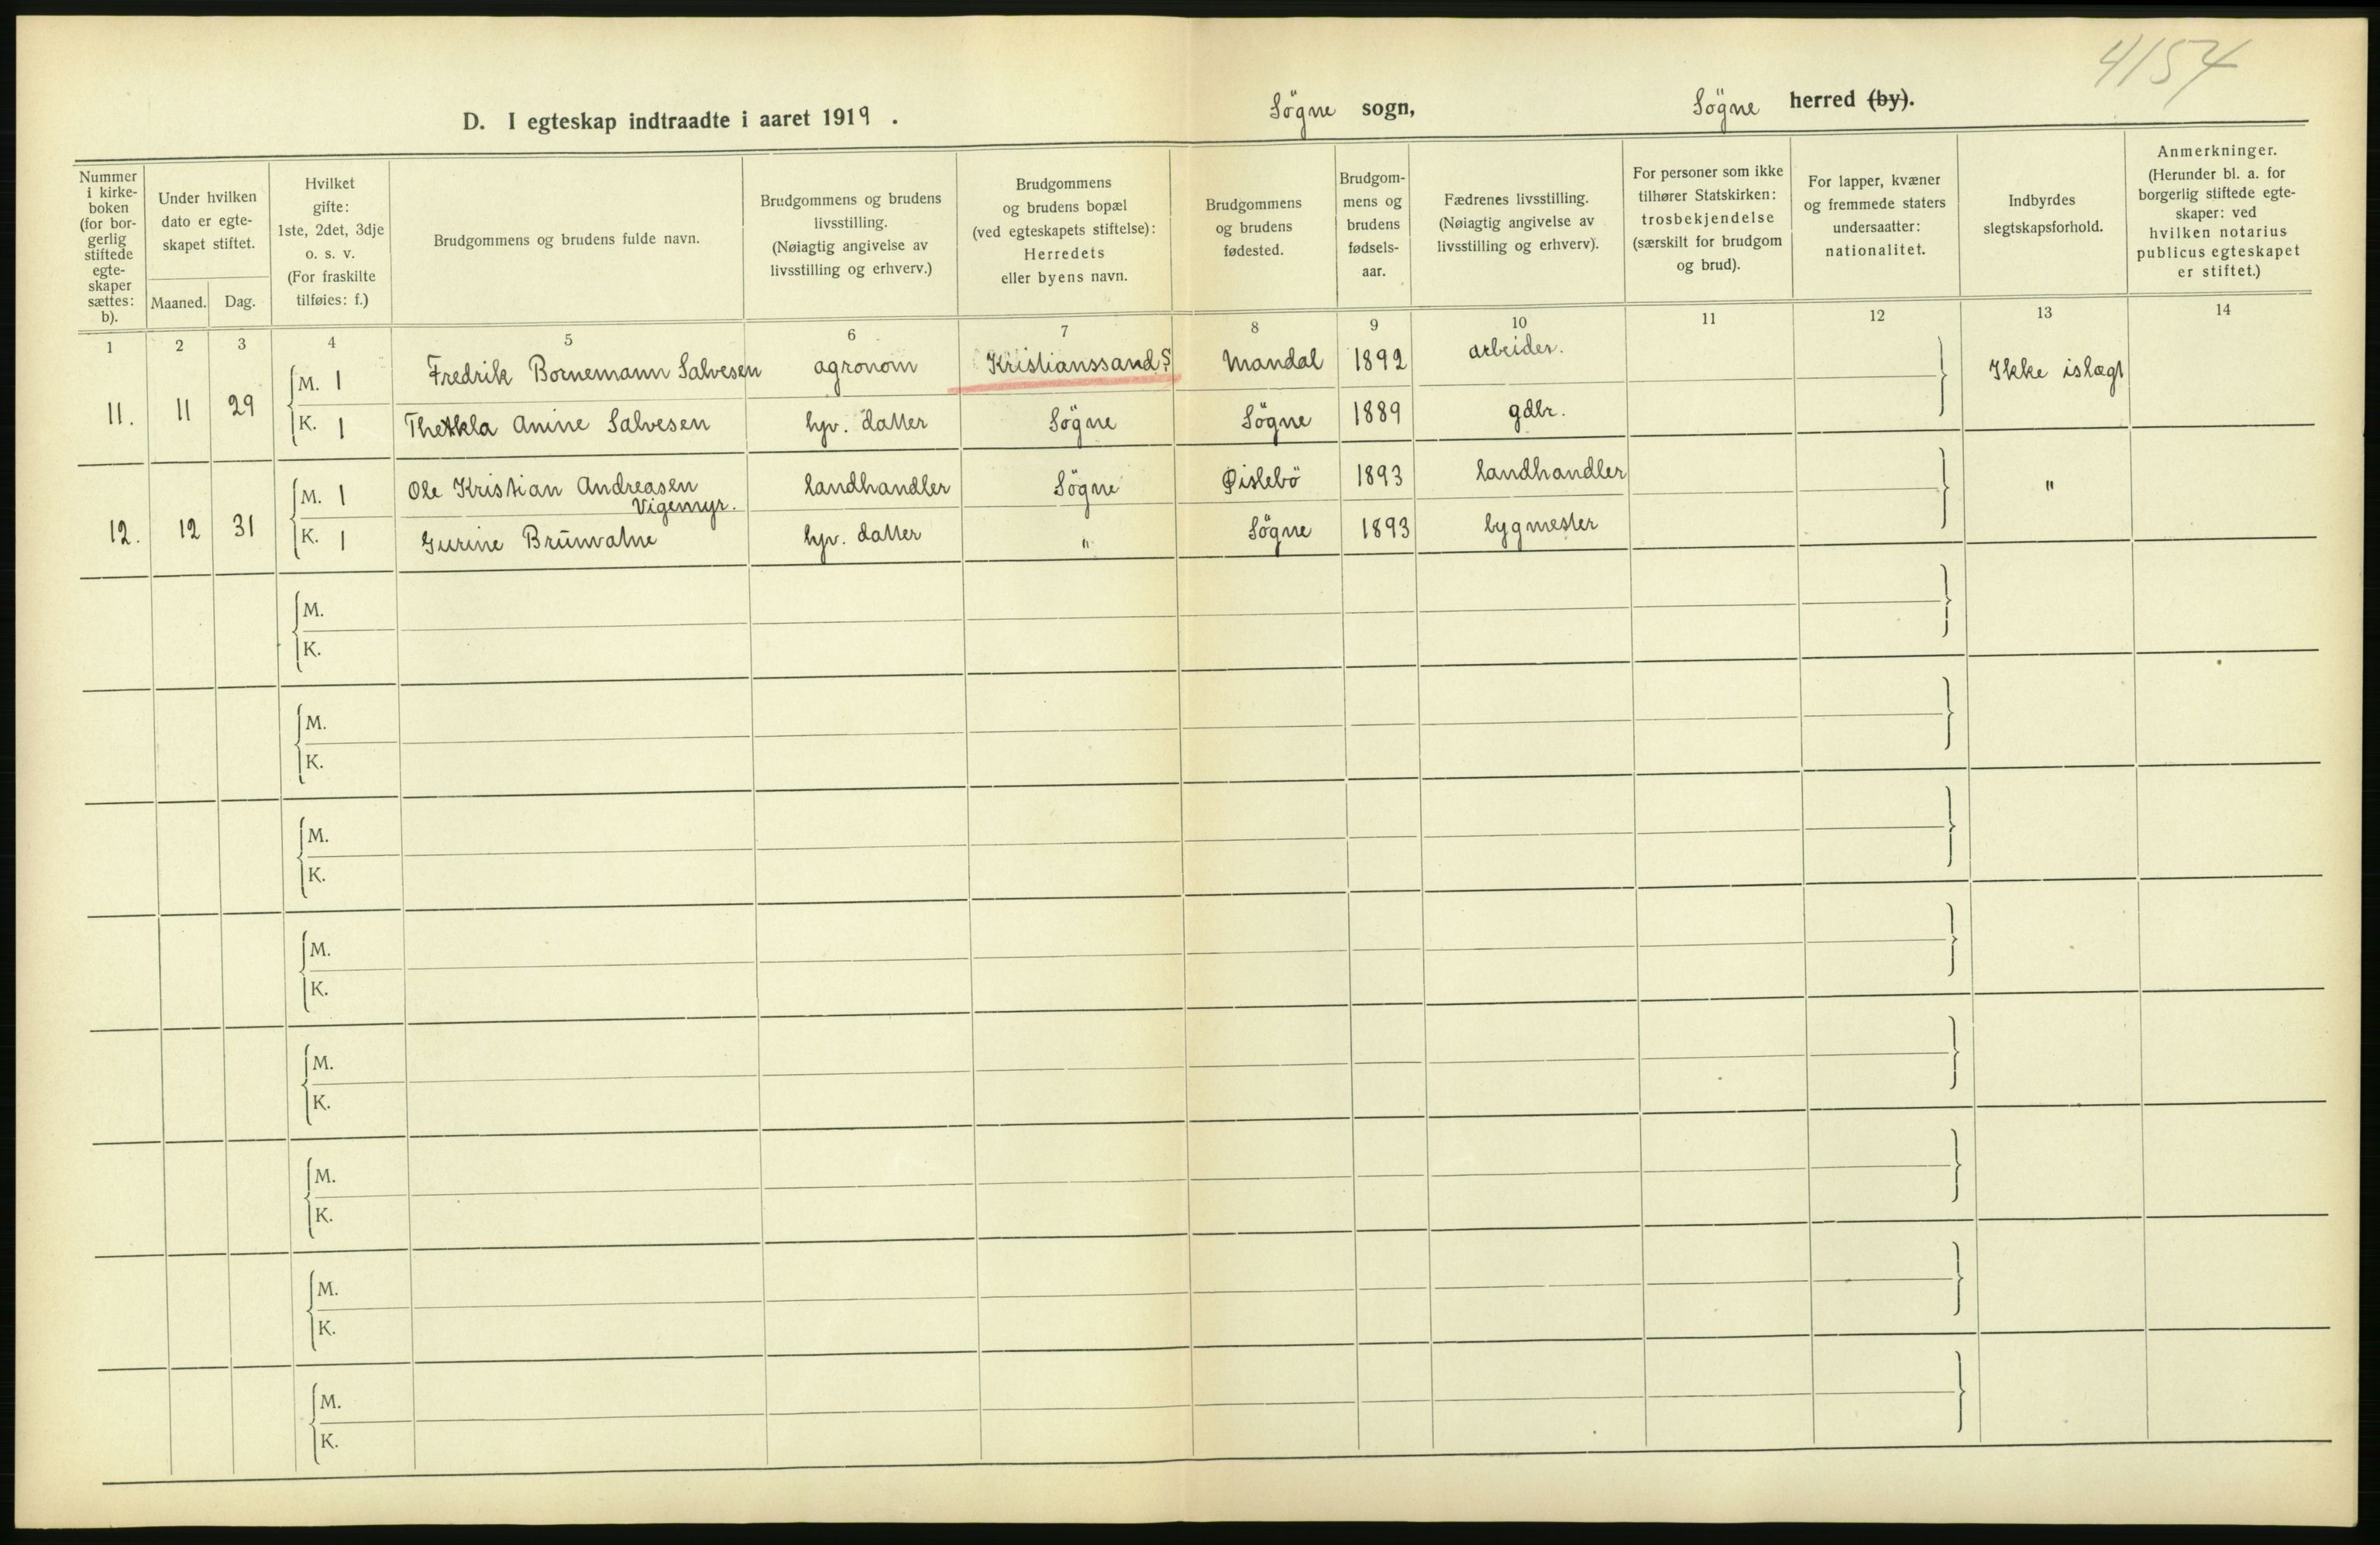 4154
D. I egteskap indtraadte i aaret 1919 . Søgne sogn, Søgne herred (by).
Nummer
i kirke-
boken
(for bor-
gerlig
stiftede
egte-
skaper
sættes:
b).
Under hvilken
dato er egte-
skapet stiftet.
Maaned. Dag.
Hvilket
gifte:
1ste, 2det, 3dje
o. s. v.
(For fraskilte
tilføies: f.)
Brudgommens og brudens fulde navn.
Brudgommens og brudens
livsstilling.
(Nøiagtig angivelse av
livsstilling og erhverv.)
Brudgommens
og brudens bopæl
(ved egteskapets stiftelse):
Herredets
eller byens navn.
Brudgommens
og brudens
fødested.
Brudgom-
mens og
brudens
fødsels-
aar.
Fædrenes livsstilling.
(Nøiagtig angivelse av
livsstilling og erhverv).
For personer som ikke
tilhører Statskirken:
trosbekjendelse
(særskilt for brudgom
og brud).
For lapper, kvæner
og fremmede staters
undersaatter:
nationalitet.
Indbyrdes
slegtskapsforhold.
Anmerkninger.
(Herunder bl. a. for
borgerlig stiftede egte-
skaper: ved
hvilken notarius
publicus egteskapet
er stiftet.)
1 2 3 4 5 6 7 8 9 10 11 12 13 14
11. 11 29 M. 1 Fredrik Bornemann Salvesen agronom Kristianssand S Mandal 1892 arbeider. Ikke islægt
K. 1 Thekla Anine Salvesen hjv. datter Søgne Søgne 1889 gdbr.
12. 12 31 M. 1 Ole Kristian Andreasen landhandler Søgne Øislebö 1893 landhandler "
Vigemyr.
K. 1 Gurine Brünvatne hjv. datter " Søgne 1893 bygmester
M.
K.
M.
K.
M.
K.
M.
K.
M.
K.
M.
K.
M.
K.
M.
K.